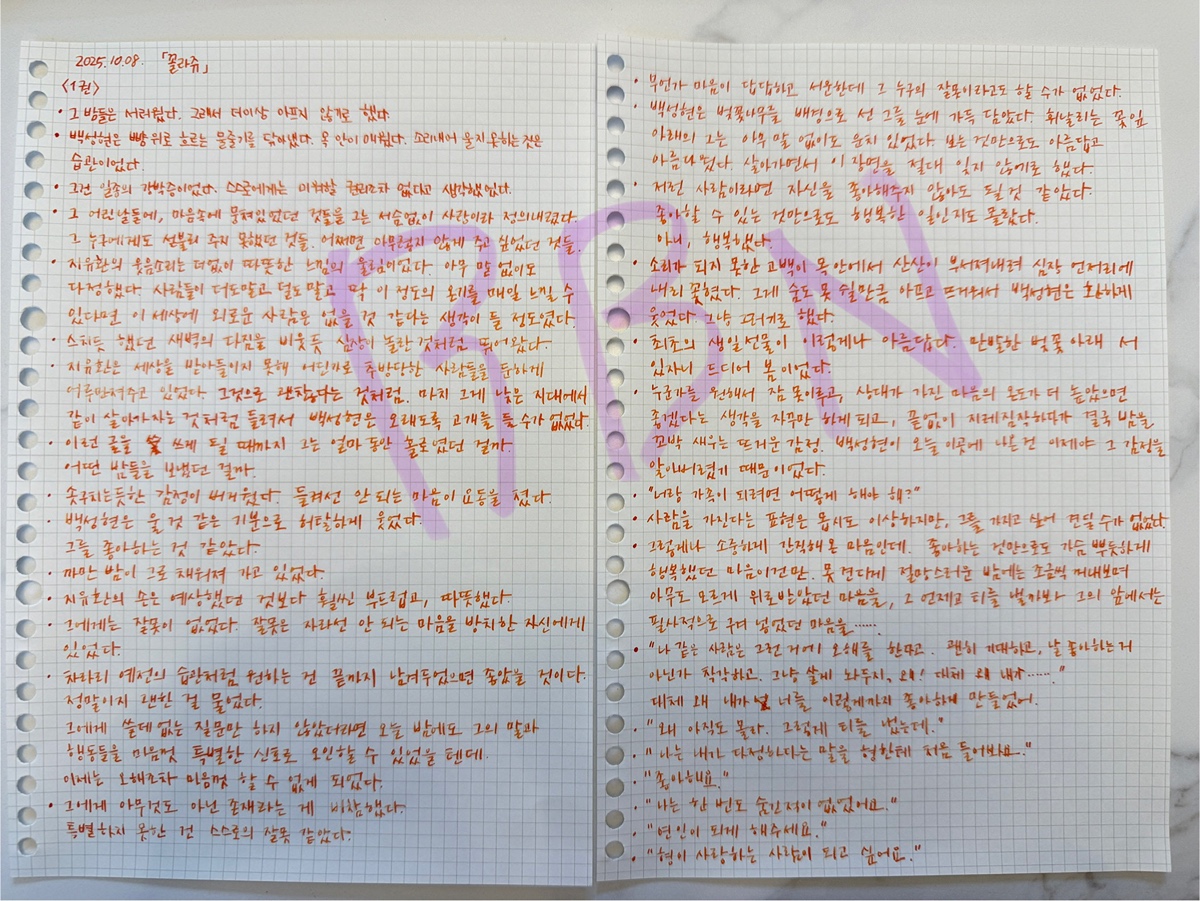 2025.10.08. 「꼴라쥬」
<1권>
• 그 밤들은 서러웠다. 그래서 더이상 아프지 않기로 했다
• 백성현은 뺨 위로 흐르는 물줄기를 닦아냈다. 목 안이 매웠다. 소리내어 울지 못하는 것은
습관이었다.
• 그건 일종의 강박증이었다. 스스로에게는 이해할 권리조차 없다고 생각했었다.
• 그 어린날들에, 마음속에 뭉쳐있었던 것들을 그는 서슴없이 사랑이라 정의내렸다.
그 누구에게도 섣불리 주지 못했던 것들. 어쩌면 아무렇지 않게 주고 싶었던 것들.
• 지유환의 웃음소리는 더없이 따뜻한 느낌의 울림이었다. 아무 말 없이도
다정했다. 사람들이 더도말고 덜도말고 딱 이 정도의 온기를 매일 느낄 수
있다면 이 세상에 외로운 사람은 없을 것 같다는 생각이 들 정도였다.
• 스치듯 했던 새벽의 다짐을 비웃듯 심장이 놀란 것처럼 뛰어왔다.
• 지유환은 세상을 받아들이지 못해 어딘가로 추방당한 사람들을 둔하게
어루만져주고 있었다. 그것으로 괜찮다는 것처럼. 마치 그게 낮은 지대에서
같이 살아가자는 것처럼 들려서 백성현은 오래도록 고개를 들 수가 없었다.
• 이런 글을 쓰게 될 때까지 그는 얼마 동안 홀로였던 걸까.
어떤 밤들을 보냈던 걸까.
• 솟구치는듯한 감정이 버거웠다. 들켜선 안 되는 마음이 요동을 쳤다.
• 백성현은 울 것 같은 기분으로 허탈하게 웃었다.
그를 좋아하는 것 같았다.
• 까만 밤이 그로 채워져 가고 있었다.
• 지유환의 손은 예상했던 것보다 훨씬 부드럽고, 따뜻했다.
• 그에게는 잘못이 없었다. 잘못은 자라선 안 되는 마음을 방치한 자신에게
있었다.
• 차라리 예전의 습관처럼 원하는 건 끝까지 남겨두었으면 좋았을 것이다.
정말이지 괜한 걸 물었다.
그에게 쓸데없는 질문만 하지 않았더라면 오늘 밤에도 그의 말과
행동들을 마음껏 특별한 신호로 오인할 수 있었을 텐데.
이제는 오해조차 마음껏 할 수 없게 되었다.
• 그에게 아무것도 아닌 존재라는 게 비참했다.
특별하지 못한 건 스스로의 잘못 같았다.
• 무언가 마음이 답답하고 서운한데 그 누구의 잘못이라고도 할 수가 없었다.
• 백성현은 벚꽃나무를 배경으로 선 그를 눈에 가득 담았다. 휘날리는 꽃잎
아래의 그는 아무 말 없이도 운치 있었다. 보는 것만으로도 아름답고
아름다웠다. 살아가면서 이 장면을 절대 잊지 않기로 했다.
• 저런 사람이라면 자신을 좋아해주지 않아도 될 것 같았다.
좋아할 수 있는 것만으로도 행복한 일인지도 몰랐다.
아니, 행복했다.
• 소리가 되지 못한 고백이 목 안에서 산산이 부서져내려 심장 언저리에
내리 꽂혔다. 그게 숨도 못 쉴만큼 아프고 뜨거워서 백성현은 환하게
웃었다. 그냥 그러기로 했다.
• 최초의 생일선물이 이렇게나 아름답다. 만발한 벚꽃 아래 서
있자니 드디어 봄이었다.
• 누군가를 원해서 잠 못 이루고, 상대가 가진 마음의 온도가 더 높았으면
좋겠다는 생각을 자꾸만 하게 되고, 끝없이 지레짐작하다가 결국 밤을
꼬박 새우는 뜨거운 감정. 백성현이 오늘 이곳에 나온 건 이제야 그 감정을
알아버렸기 때문이었다.
• "너랑 가족이 되려면 어떻게 해야 해?"
• 사람을 가진다는 표현은 몹시도 이상하지만, 그를 가지고 싶어 견딜 수가 없었다.
• 그렇게나 소중하게 간직해온 마음인데. 좋아하는 것만으로도 가슴 뿌듯하게
행복했던 마음이건만. 못 견디게 절망스러운 밤에는 조금씩 꺼내보며
아무도 모르게 위로받았던 마음을, 그 언제고 티를 낼까봐 그의 앞에서는
필사적으로 구겨 넣었던 마음을……
• "나 같은 사람은 그런 거에 오해를 한다고. 괜히 기대하고, 날 좋아하는 거
아닌가 착각하고. 그냥 살게 놔두지, 왜! 대체 왜 내가……"
대체 왜 내가 너를, 이렇게까지 좋아하게 만들었어.
• "왜 아직도 몰라. 그렇게 티를 냈는데."
• "나는 내가 다정하다는 말을 형한테 처음 들어봐요."
• "좋아해요."
• "나는 한 번도 숨긴적이 없었어요."
• "연인이 되게 해주세요."
• "형이 사랑하는 사람이 되고 싶어요."
RBN